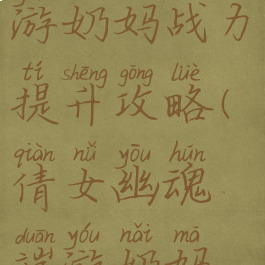 游奶妈战力
tí shēng gōng lüè
提升攻略(
qiàn nǚ yōu hún
倩女幽魂
duān yóu nǎi mā
端游奶妈